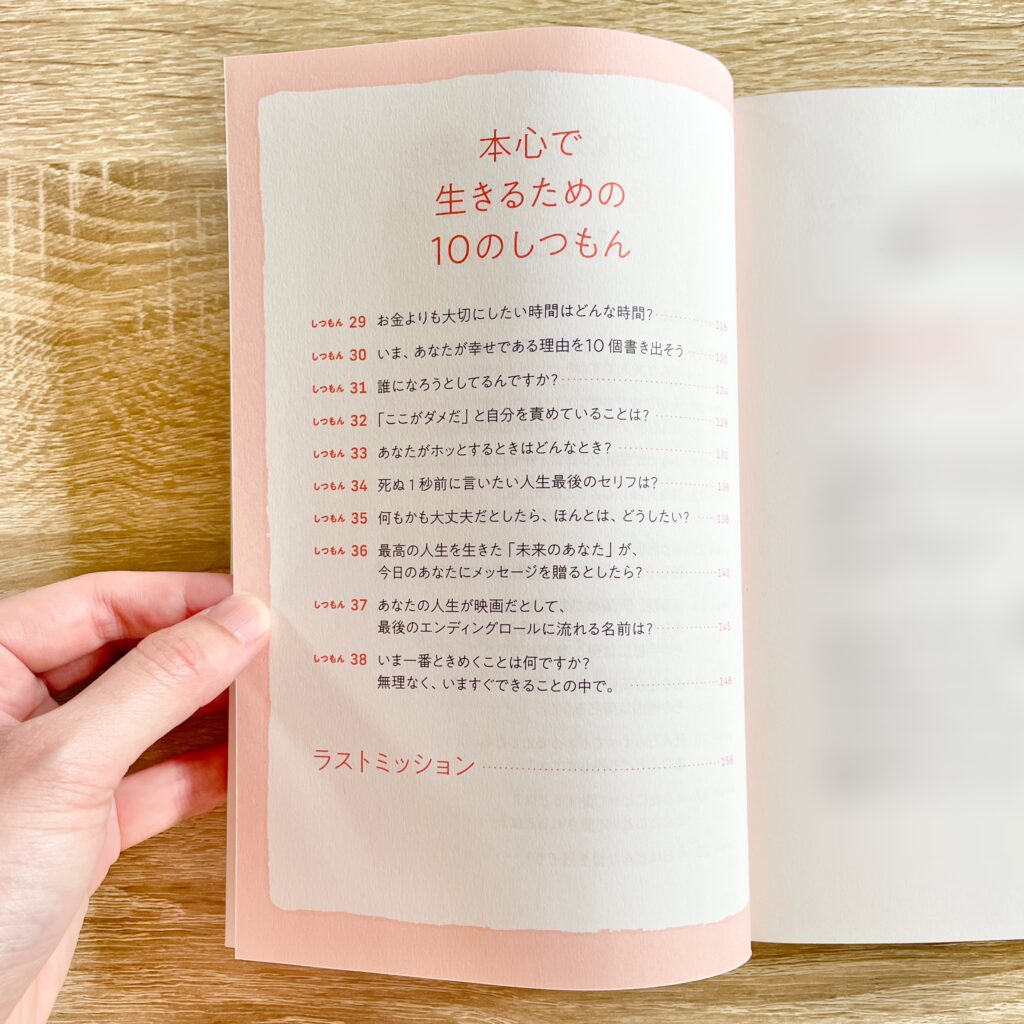 本心で
生きるための
10のしつもん
しつもん 29 お金よりも大切にしたい時間はどんな時間? 118
しつもん 30 いま、あなたが幸せである理由を10個書き出そう 120
しつもん 31 誰になろうとしてるんですか? 124
しつもん 32 「ここがダメだ」と自分を責めていることは? 128
しつもん 33 あなたがホッとするときはどんなとき? 132
しつもん 34 死ぬ1秒前に言いたい人生最後のセリフは? 136
しつもん 35 何もかも大丈夫だとしたら、ほんとは、どうしたい? 138
しつもん 36 最高の人生を生きた「未来のあなた」が、
今日のあなたにメッセージを贈るとしたら? 140
しつもん 37 あなたの人生が映画だとして、
最後のエンディングロールに流れる名前は? 145
しつもん 38 いま一番ときめくことは何ですか?
無理なく、いますぐできることの中で。 148
ラストミッション 156